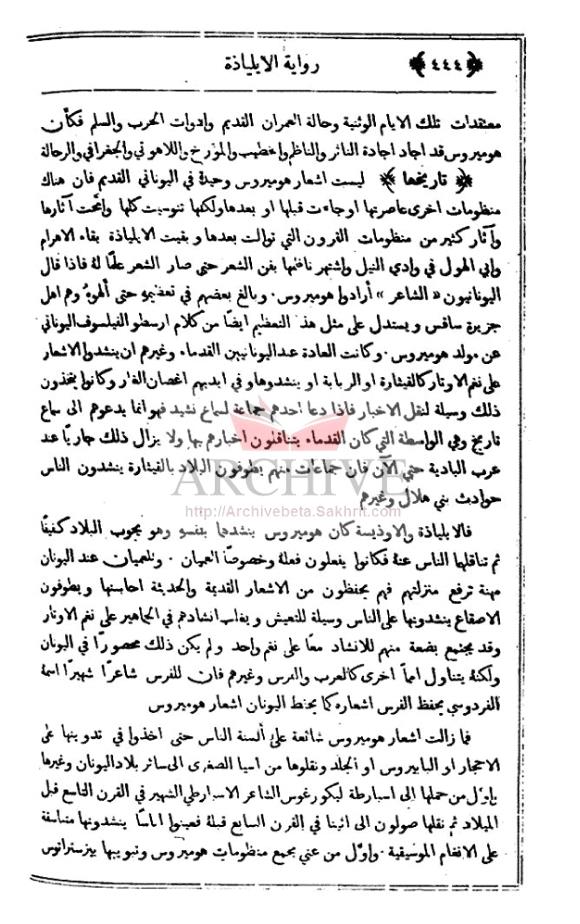 رواية الايلياذة
﴿٤٤٤﴾
معتقدات تلك الايام الوثنية وحالة العمران القديم وادوات الحرب والسلم فكأن
هوميروس قد اجاد اجادة الناثر والناظم والخطيب والمؤرخ واللاهوتي والجغرافي والرحالة
﴿ تاريخها ﴾ ليست اشعار هوميروس وحيدة في اليوناني القديم فان هناك
منظومات اخرى عاصرتها او جاءت قبلها او بعدها ولكنها تنوسيت كلها وامحت آثارها
وآثار كثير من منظومات القرون التي توالت بعدها وبقيت الايلياذة بقاء الاهرام
وابي الهول في وادي النيل واشتهر ناظمها بفن الشعر حتى صار الشعر علمًا لهُ فاذا قال
اليونانيون «الشاعر» أرادوا هوميروس . وبالغ بعضهم في تعظيمهِ حتى ألهوهُ وهم اهل
جزيرة ساقس ويستدل على مثل هذ التعظيم ايضًا من كلام ارسطو الفيلسوف اليوناني
عن مولد هوميروس . وكانت العادة عند اليونانيين القدماء وغيرهم ان ينشدوا الاشعار
على نغم الاوتار كالقيثارة او الربابة او ينشدوها وفي ايديهم اغصان الغار وكانوا يتخذون
ذلك وسيلة لنقل الاخبار فاذا دعا احدهم جماعة لسماع نشيد فهو انما يدعوهم الى سماع
تاريخ وهي الواسطة التي كان القدماء يتناقلون اخبارهم بها ولا يزال ذلك جاريًا عند
عرب البادية حتى الآن فان جماعات منهم يطوفون البلاد بالقيثارة ينشدون الناس
حوادث بني هلال وغيرهم
ARCHIVE
http://Archivebeta.Sakhrit.com
فالايلياذة والاوذيسة كان هوميروس ينشدها بنفسهِ وهو يجوب البلاد كفيفًا
ثم تناقلها الناس عنهُ فكانوا يفعلون فعلهُ وخصوصًا العميان . وللعميان عند اليونان
مهنة ترفع منزلتهم فهم يحفظون من الاشعار القديمة والحديثة احاسنها ويطوفون
الاصقاع ينشدونها على الناس وسيلة للتعيش ويغلب انشادهم في الجماهير على نغم الاوتار
وقد يجتمع بضعة منهم للانشاد معًا على نغم واحد ولم يكن ذلك محصورًا في اليونان
ولكنهُ يتناول اممًا اخرى كالعرب والفرس وغيرهم فان للفرس شاعرًا شهيرًا اسمهُ
الفردوسي يحفظ الفرس اشعاره كما يحفظ اليونان اشعار هوميروس
فما زالت اشعار هوميروس شائعة على ألسنة الناس حتى اخذوا في تدوينها على
الاحجار او البابيروس او الجلد ونقلوها من اسيا الصغرى الى سائر بلاد اليونان وغيرها
واول من حملها الى اسبارطة ليكورغوس الشاعر الاسبارطي الشهير في القرن التاسع قبل
الميلاد ثم نقلها صولون الى اثينا في القرن السابع قبلهُ فعينوا اناسًا ينشدونها متناسقة
على الانغام الموسيقية . واول من عني بجمع منظومات هوميروس وتبويبها بيزستراتوس